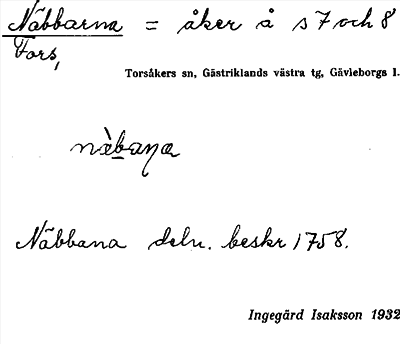 Näbbarna = åker å s 7 och 8
Fors,
Torsåkers sn, Gästriklands västra tg, Gävleborgs l.
nàbaṇa
Näbbana deln. beskr 1758.
Ingegärd Isaksson 1932